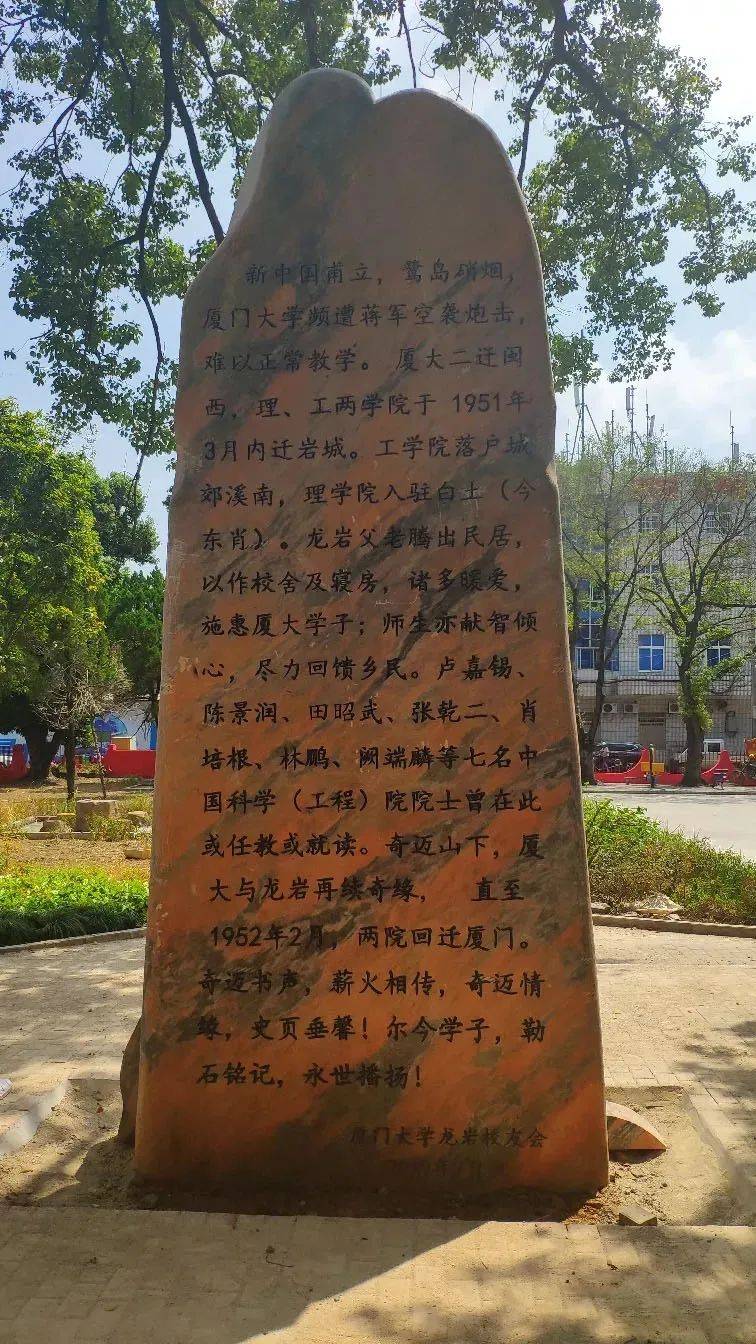 新中国甫立，鹭岛硝烟，
厦门大学频遭蒋军空袭炮击，
难以正常教学。厦大二迁闽
西，理、工两学院于 1951年
3月内迁岩城。工学院落户城
郊溪南，理学院入驻白土（今
东肖）。龙岩父老腾出民居，
以作校舍及寝房，诸多暖爱，
施惠厦大学子；师生亦献智倾
心，尽力回馈乡民。卢嘉锡、
陈景润、田昭武、张乾二、肖
培根、林鹏、阙端麟等七名中
国科学（工程）院院士曾在此
或任教或就读。奇迈山下，厦
大与龙岩再续奇缘， 直至
1952年2月，两院回迁厦门。
奇迈书声，薪火相传，奇迈情
缘，史页垂馨！尔今学子，勒
石铭记，永世播扬！
厦门大学龙岩校友会